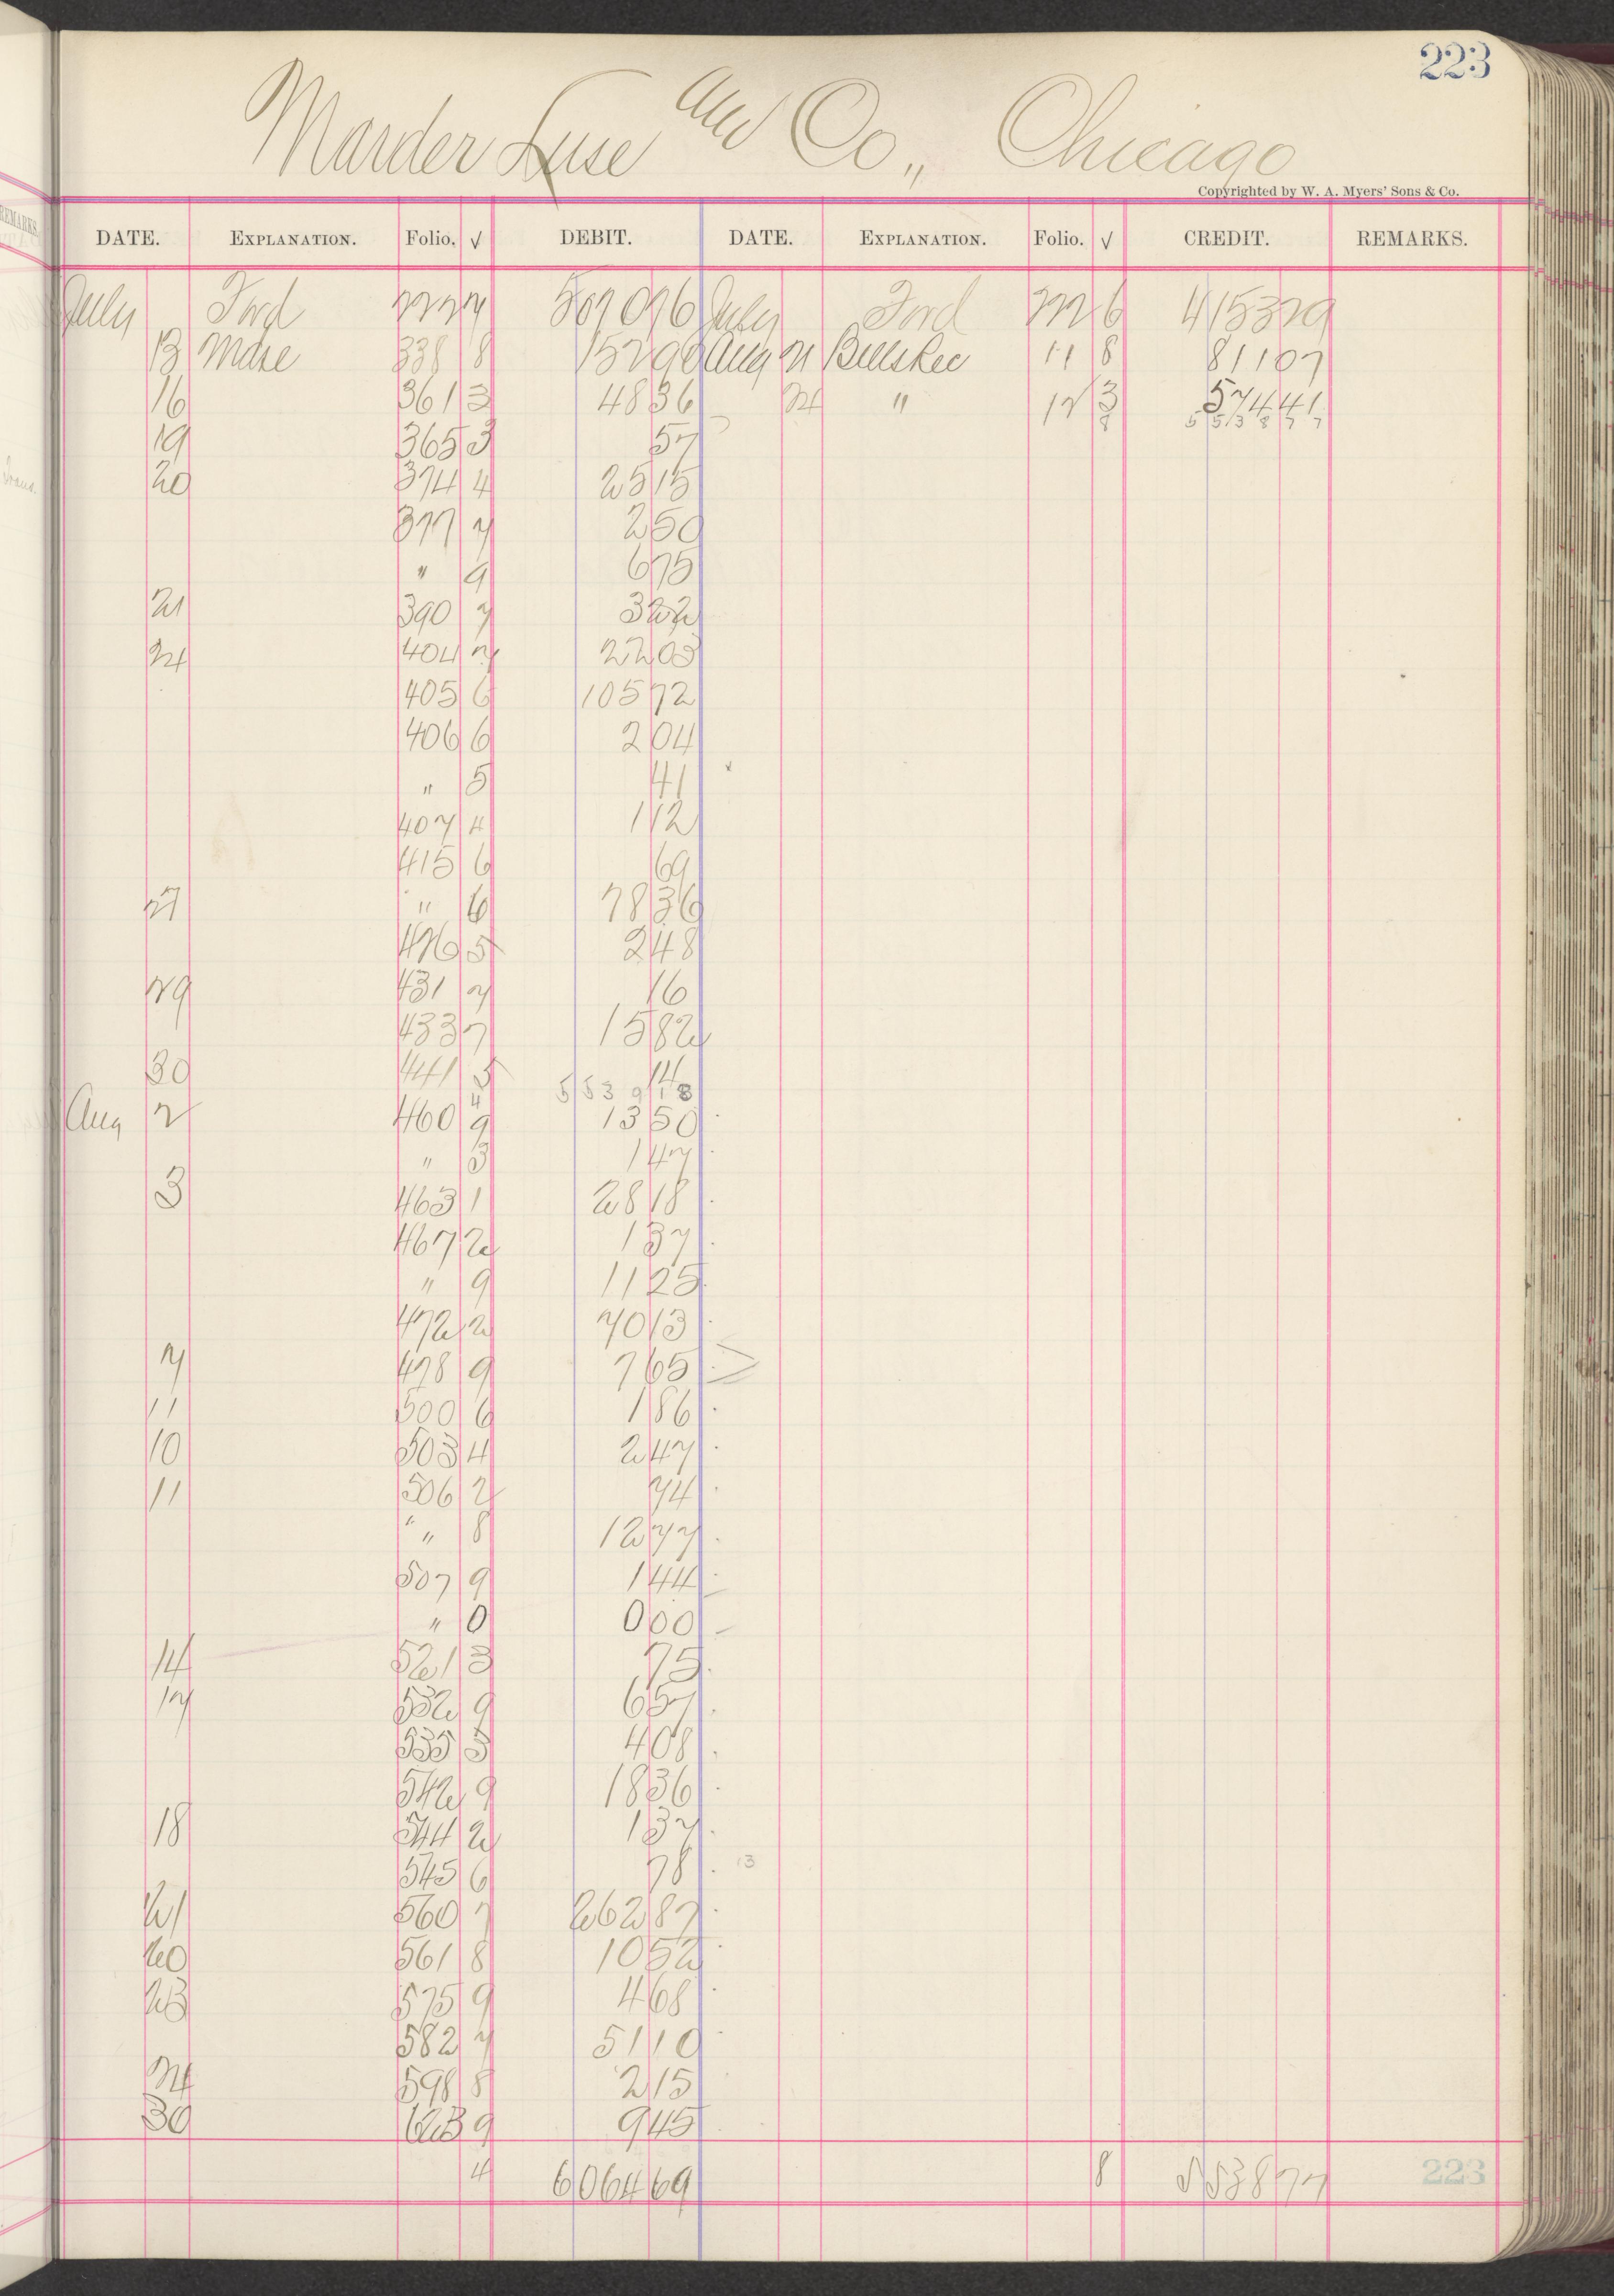 223
Marder Luse and Co., Chicago
Copyrighted by W. A. Myers' Sons & Co.
DATE. EXPLANATION. Folio. √ DEBIT. DATE. EXPLANATION. Folio. √ CREDIT. REMARKS.
July Ford 222 7 5070 96 July Ford 222 6 4153 29
13 Mdse 338 8 152 90 Aug 21 Bills Rec 11 8 811 07
16 361 3 48 36 24 " 12 3 574 41
5538 77
19 365 3 57
20 374 4 25 15
377 7 2 50
" 9 6 75
21 390 7 3 22
24 404 7 22 03
405 6 105 72
406 6 2 04
" 5 41
407 4 1 12
415 6 69
27 " 6 78 36
426 5 2 48
29 431 7 16
433 7 15 82
30 441 5 14
5539 18
Aug 2 460 9 13 50
" 3 1 47
3 463 1 28 18
467 2 1 37
" 9 11 25
472 2 70 13
7 478 9 7 65
11 500 6 1 86
10 503 4 2 47
11 506 2 74
" 8 12 77
507 9 1 44
" 0 0 00
14 521 3 75
17 532 9 6 57
535 3 4 08
542 9 18 36
18 544 2 1 37
545 6 78 13
21 560 7 262 87
20 561 8 10 52
23 575 9 4 68
582 7 51 10
24 598 8 2 15
30 623 9 9 45
4 6064 69 8 5538 77
223